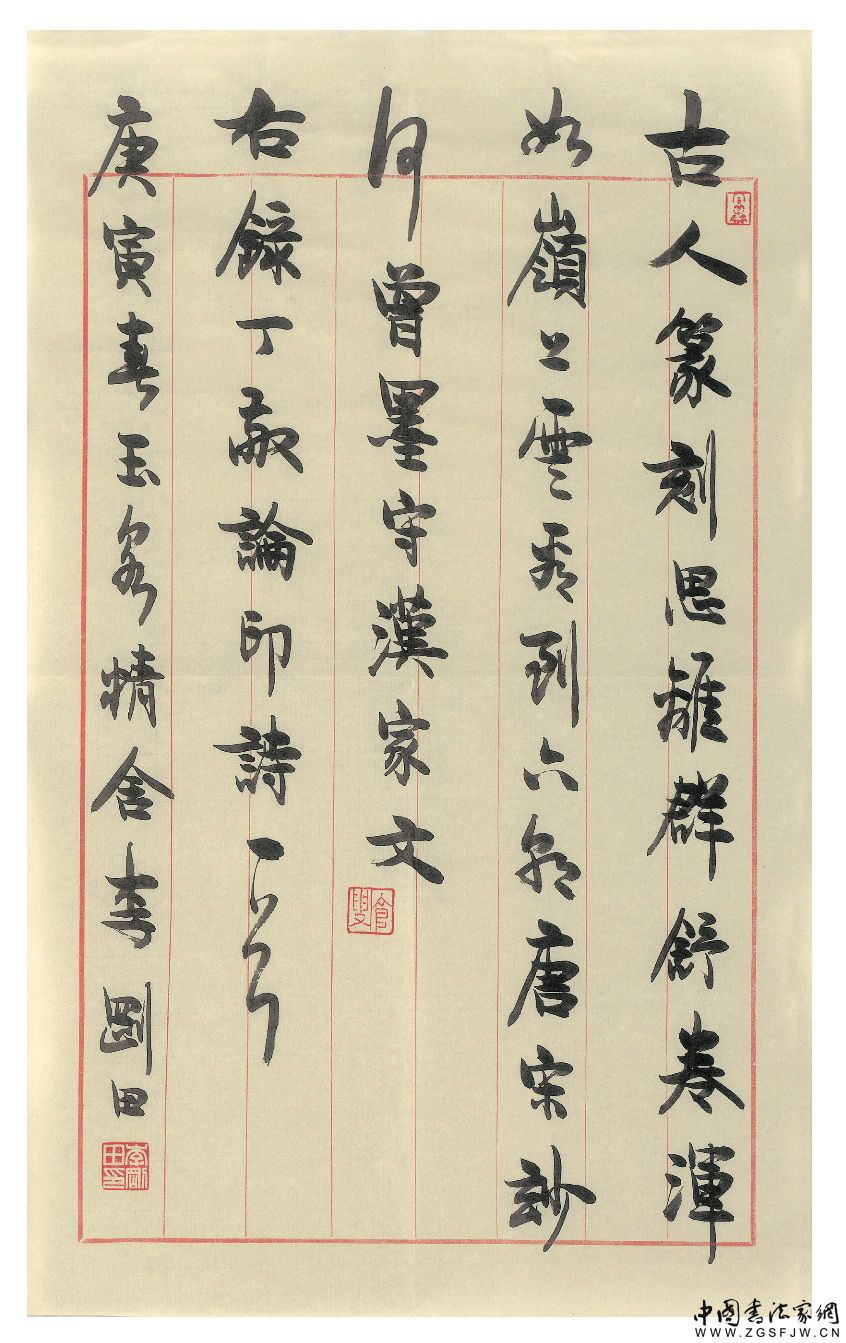 古人篆刻思離群舒卷渾
如嶺上雲看到六朝唐宋玅
何曾墨守漢家文
右錄丁敬論印詩一首
庚寅春玉泉精舍李剛田
李剛田印
中国书法家網
WWW.ZGSFJW.CN